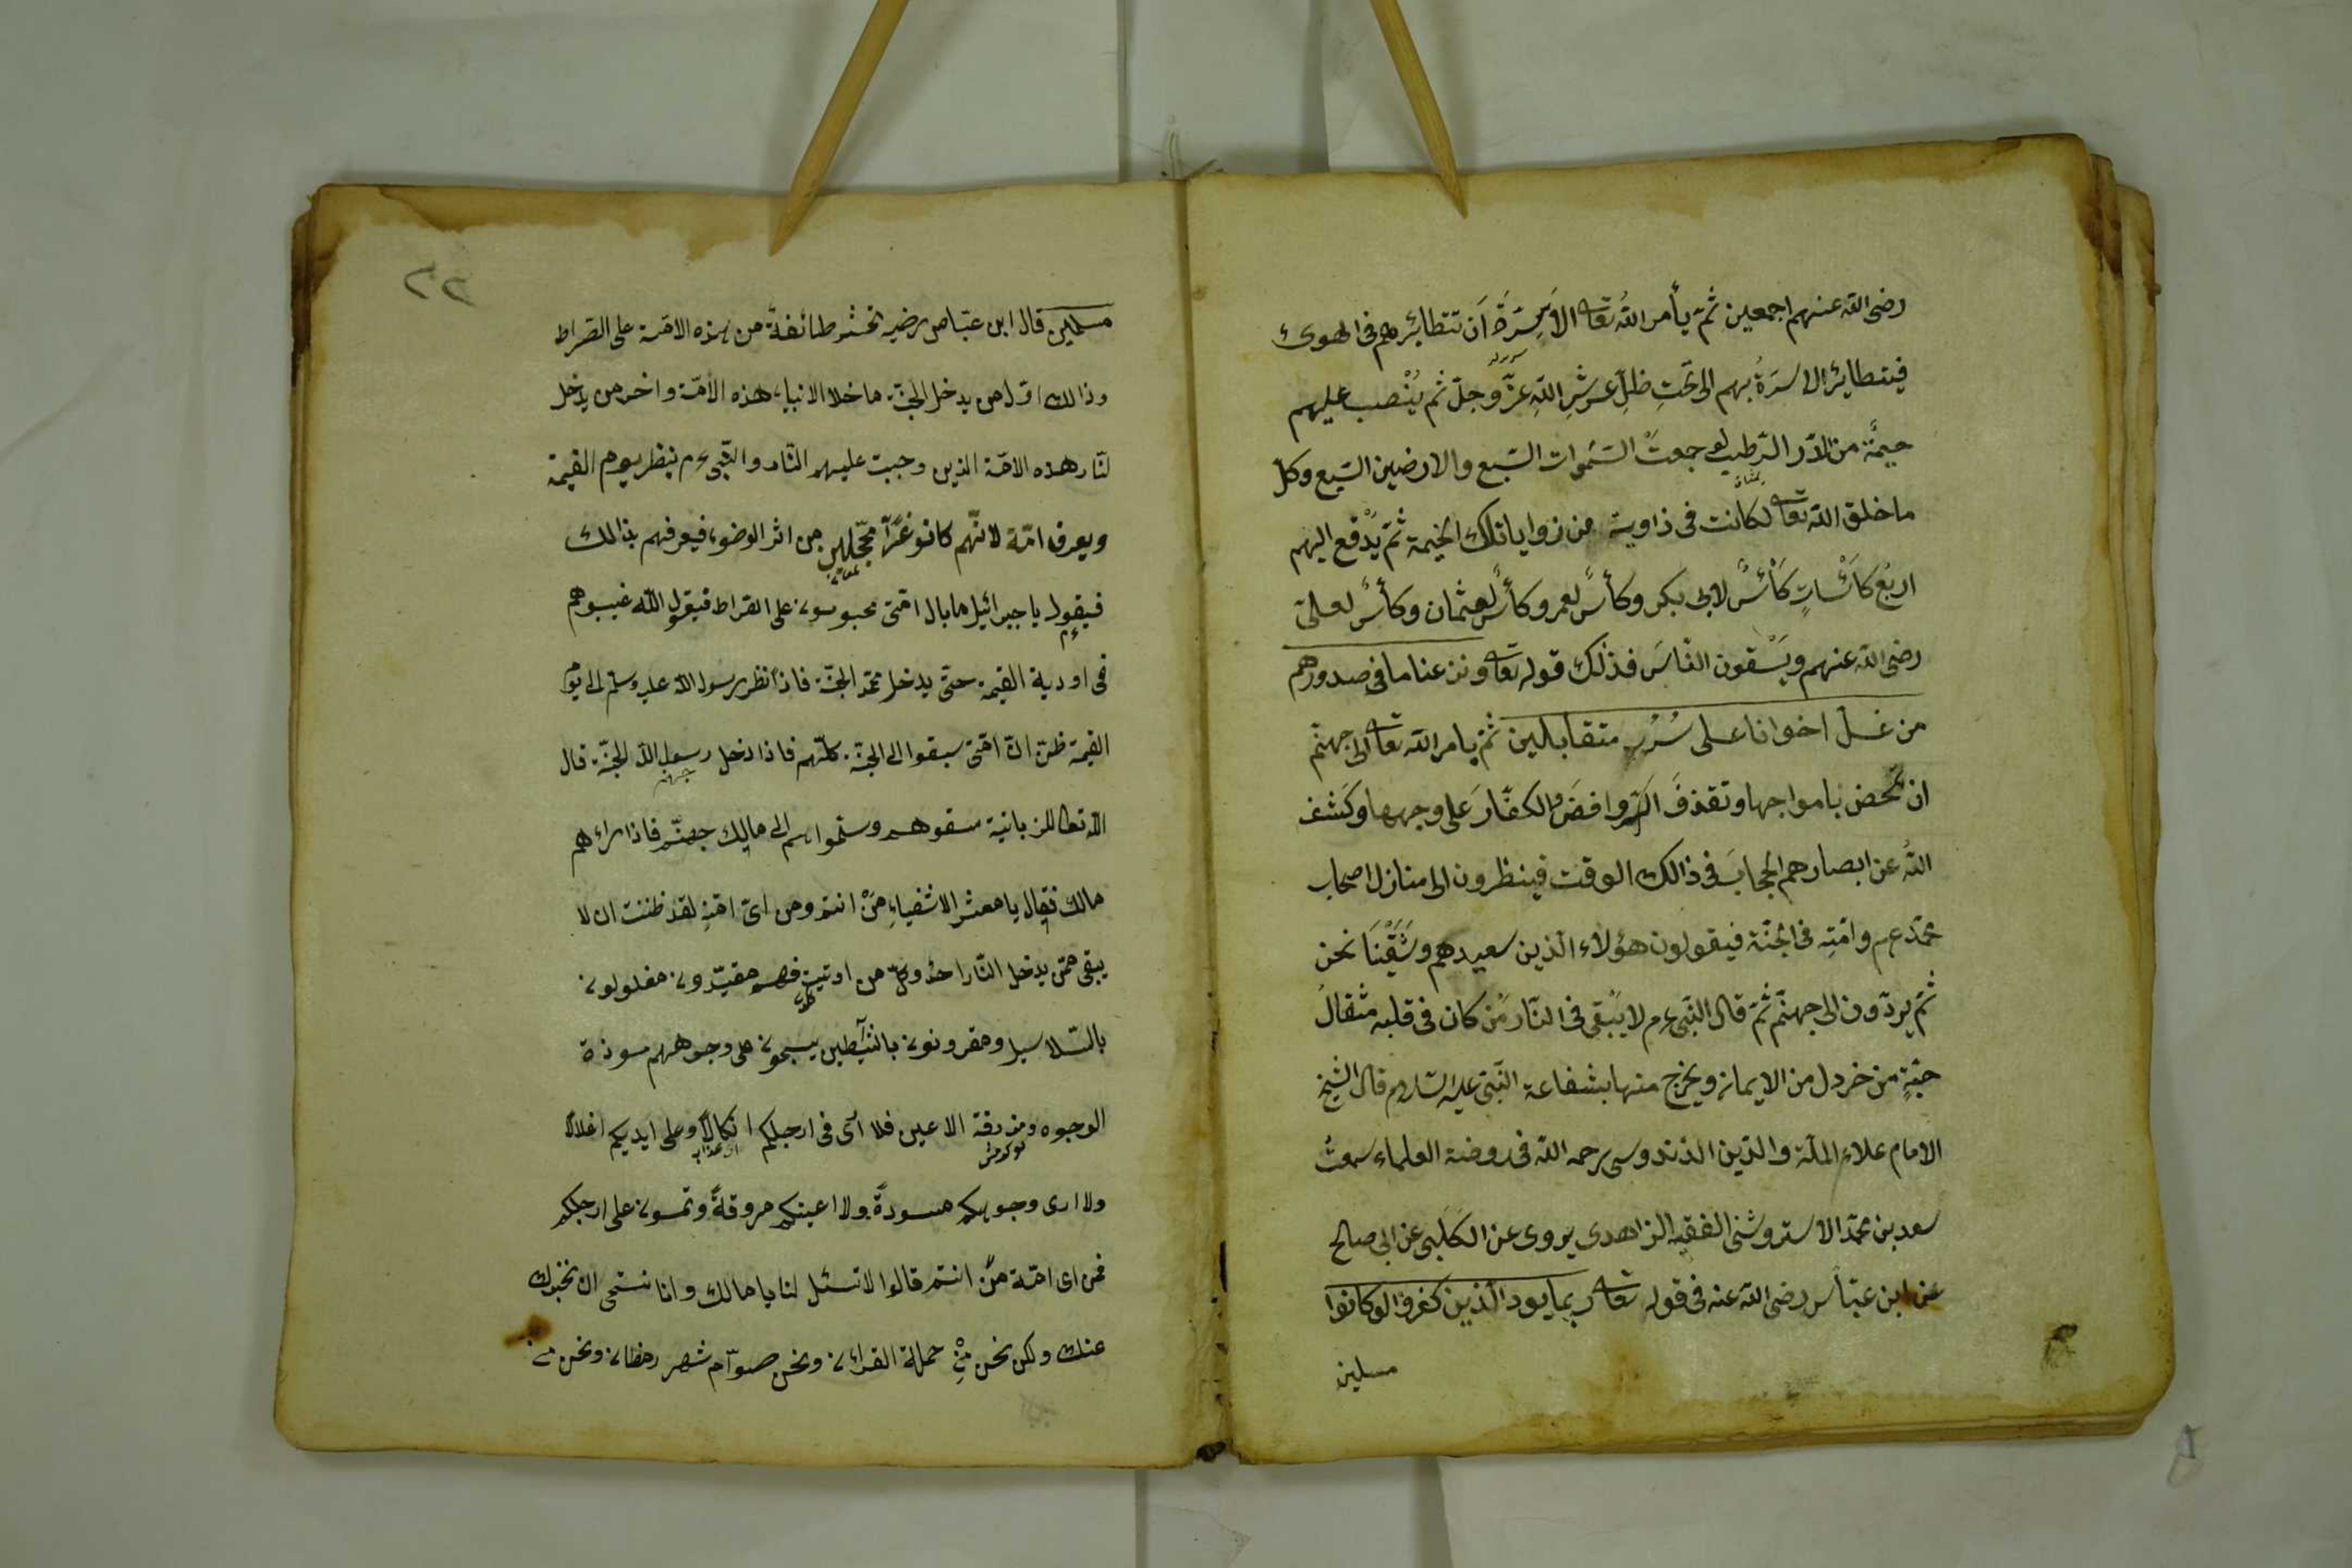 رضى الله عنهم اجمعين ثم يأمر الله تعا الاَسِرَّةَ اَن تتطائر بهم فى الهوىء
فيتطايرُ الاسرّةُ بهم الى تحْتِ ظلّ عرشِ اللّهِ عزّ وجلّ ثم يُنْصب عليهم
خيمَة من الدّر الرّطب لو جمعتْ السّمٰوات السّبع والارضين السّبع وكلّ
ما خلق الله تعا لكانت فى ذاوية من زوايا تلك الخيمة ثم يُدْفع اليهم
اربع كَأسَاتٍ كَأسٌ لابى بكر وكأسٌ لعمر وكأسٌ لعثمان وكأسٌ لعلىّ
رضى الله عنهم ويَسْقون النّاسَ فذلك قوله تعا ونزعنا ما فى صدورهم
من غلّ اخوانا على سُرُرٍ متقابلين ثمّ يامر الله تعا الى جهنّم
ان تمخض بامواجها وتقذفَ الرّوافضَ والكفّارَ على وجهها وكَشف
اللهُ عن ابصارهم الحجابَ فى ذالك الوقت فينظرون الى منازل اصحاب
محمّد عم وامّتِه فى الجنّة فيقولون هؤلاء الّذين سعيدهم وشَقَيْنَا نحن
ثمّ يردّون الى جهنّم ثمّ قال النّبى عم لا يَبْقى فى النّار مَن كان فى قلبه مثقالُ
حبّةٍ من خردل من الايمان ويخرج منها بشفاعة النّبىّ عليه السّلام قال الشيخ
الامام علاء الملّة والدّين الزندوسى رحمه الله فى روضة العلماء سمعتُ
سعد بن محمّد الاستروشنى الفقيه الزاهدى يروى عن الكَلْبى عن ابى صالح
عن ابن عبّاس رضى الله عنه فى قوله تعا ربما يود الّذين كفروا لو كانوا
مسلمين
٣٢
مسلمين قال ابن عبّاس رضيه تحشر طائفةً من هذه الامّة على الصّراط
وذالك اوّل من يدخل الجنّة ما خلا الانبياء هذه الأمّة واخر من يدخل
لنّار هذه الامّة الذين وجبت عليهم النّار والنّبى عم ينظر يوم القيمة
ويعرف امّة لانّهم كانو غُرًّا محجّلين من اثر الوضوء فيعرفهم بذالك
فيقول يا جبرائيل ما بال امّتى محبوسون على الصّراط فيقول اللّه غيبوهم
فى اودية القيمة حتّى يدخل محمّد الجنّة فاذا نظر رسول الله عليه وسلّم الى يوم
القيمة ظنّ انّ امّتى سبقوا الى الجنّة كلّهم فاذا دخل رسول الله الجنّة قال
الله تعا للزبانية سقوهم وسلّموا بهم الى مالك جهنّم فاذا راءهم
مالك فقال يا معشر الاشقياءِ مَنْ انتم ومن اىّ امّةٍ لقد ظننت ان لا
يبقى ممّن يدخل النّار احدٌ وكلّ من اوتيت فهم مقيّدون مغلولون
بالسّلاسيل ومقرونون بالشيٰطين يسحبون على وجوههم مسودة
الوجوه ومزرقة الاعين فلا ارى فى ارجلكم انكالًا وعلى ايديكم اغلالًا
ولا ارى وجوهكم مسودةً ولا اعينكم مزرقةً وتمسون على ارجلكم
فمن اى امّة مَنْ انتم قالوا لا تسئل لنا يا مالك وانا نستحى ان نخبرك
عنك ولكن نحن مِنْ حملة القرائن ونحن صوّام شهر رمضان ونحن من